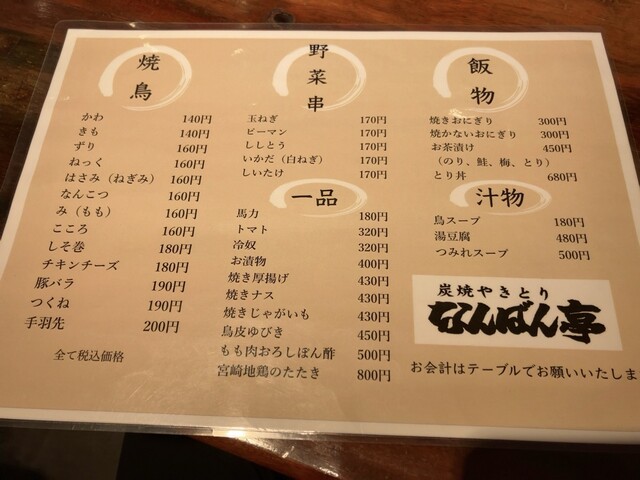 焼鳥
かわ 140円
きも 140円
ずり 160円
ねっく 160円
はさみ（ねぎみ） 160円
なんこつ 160円
み（もも） 160円
こころ 160円
しそ巻 180円
チキンチーズ 180円
豚バラ 190円
つくね 190円
手羽先 200円
全て税込価格
野菜串
玉ねぎ 170円
ピーマン 170円
ししとう 170円
いかだ（白ねぎ） 170円
しいたけ 170円
一品
馬力 180円
トマト 320円
冷奴 320円
お漬物 400円
焼き厚揚げ 430円
焼きナス 430円
焼きじゃがいも 430円
鳥皮ゆびき 450円
もも肉おろしぽん酢 500円
宮崎地鶏のたたき 800円
飯物
焼きおにぎり 300円
焼かないおにぎり 300円
お茶漬け 450円
（のり、鮭、梅、とり）
とり丼 680円
汁物
鳥スープ 180円
湯豆腐 480円
つみれスープ 500円
炭焼やきとり
なんばん亭
お会計はテーブルでお願いいたしま